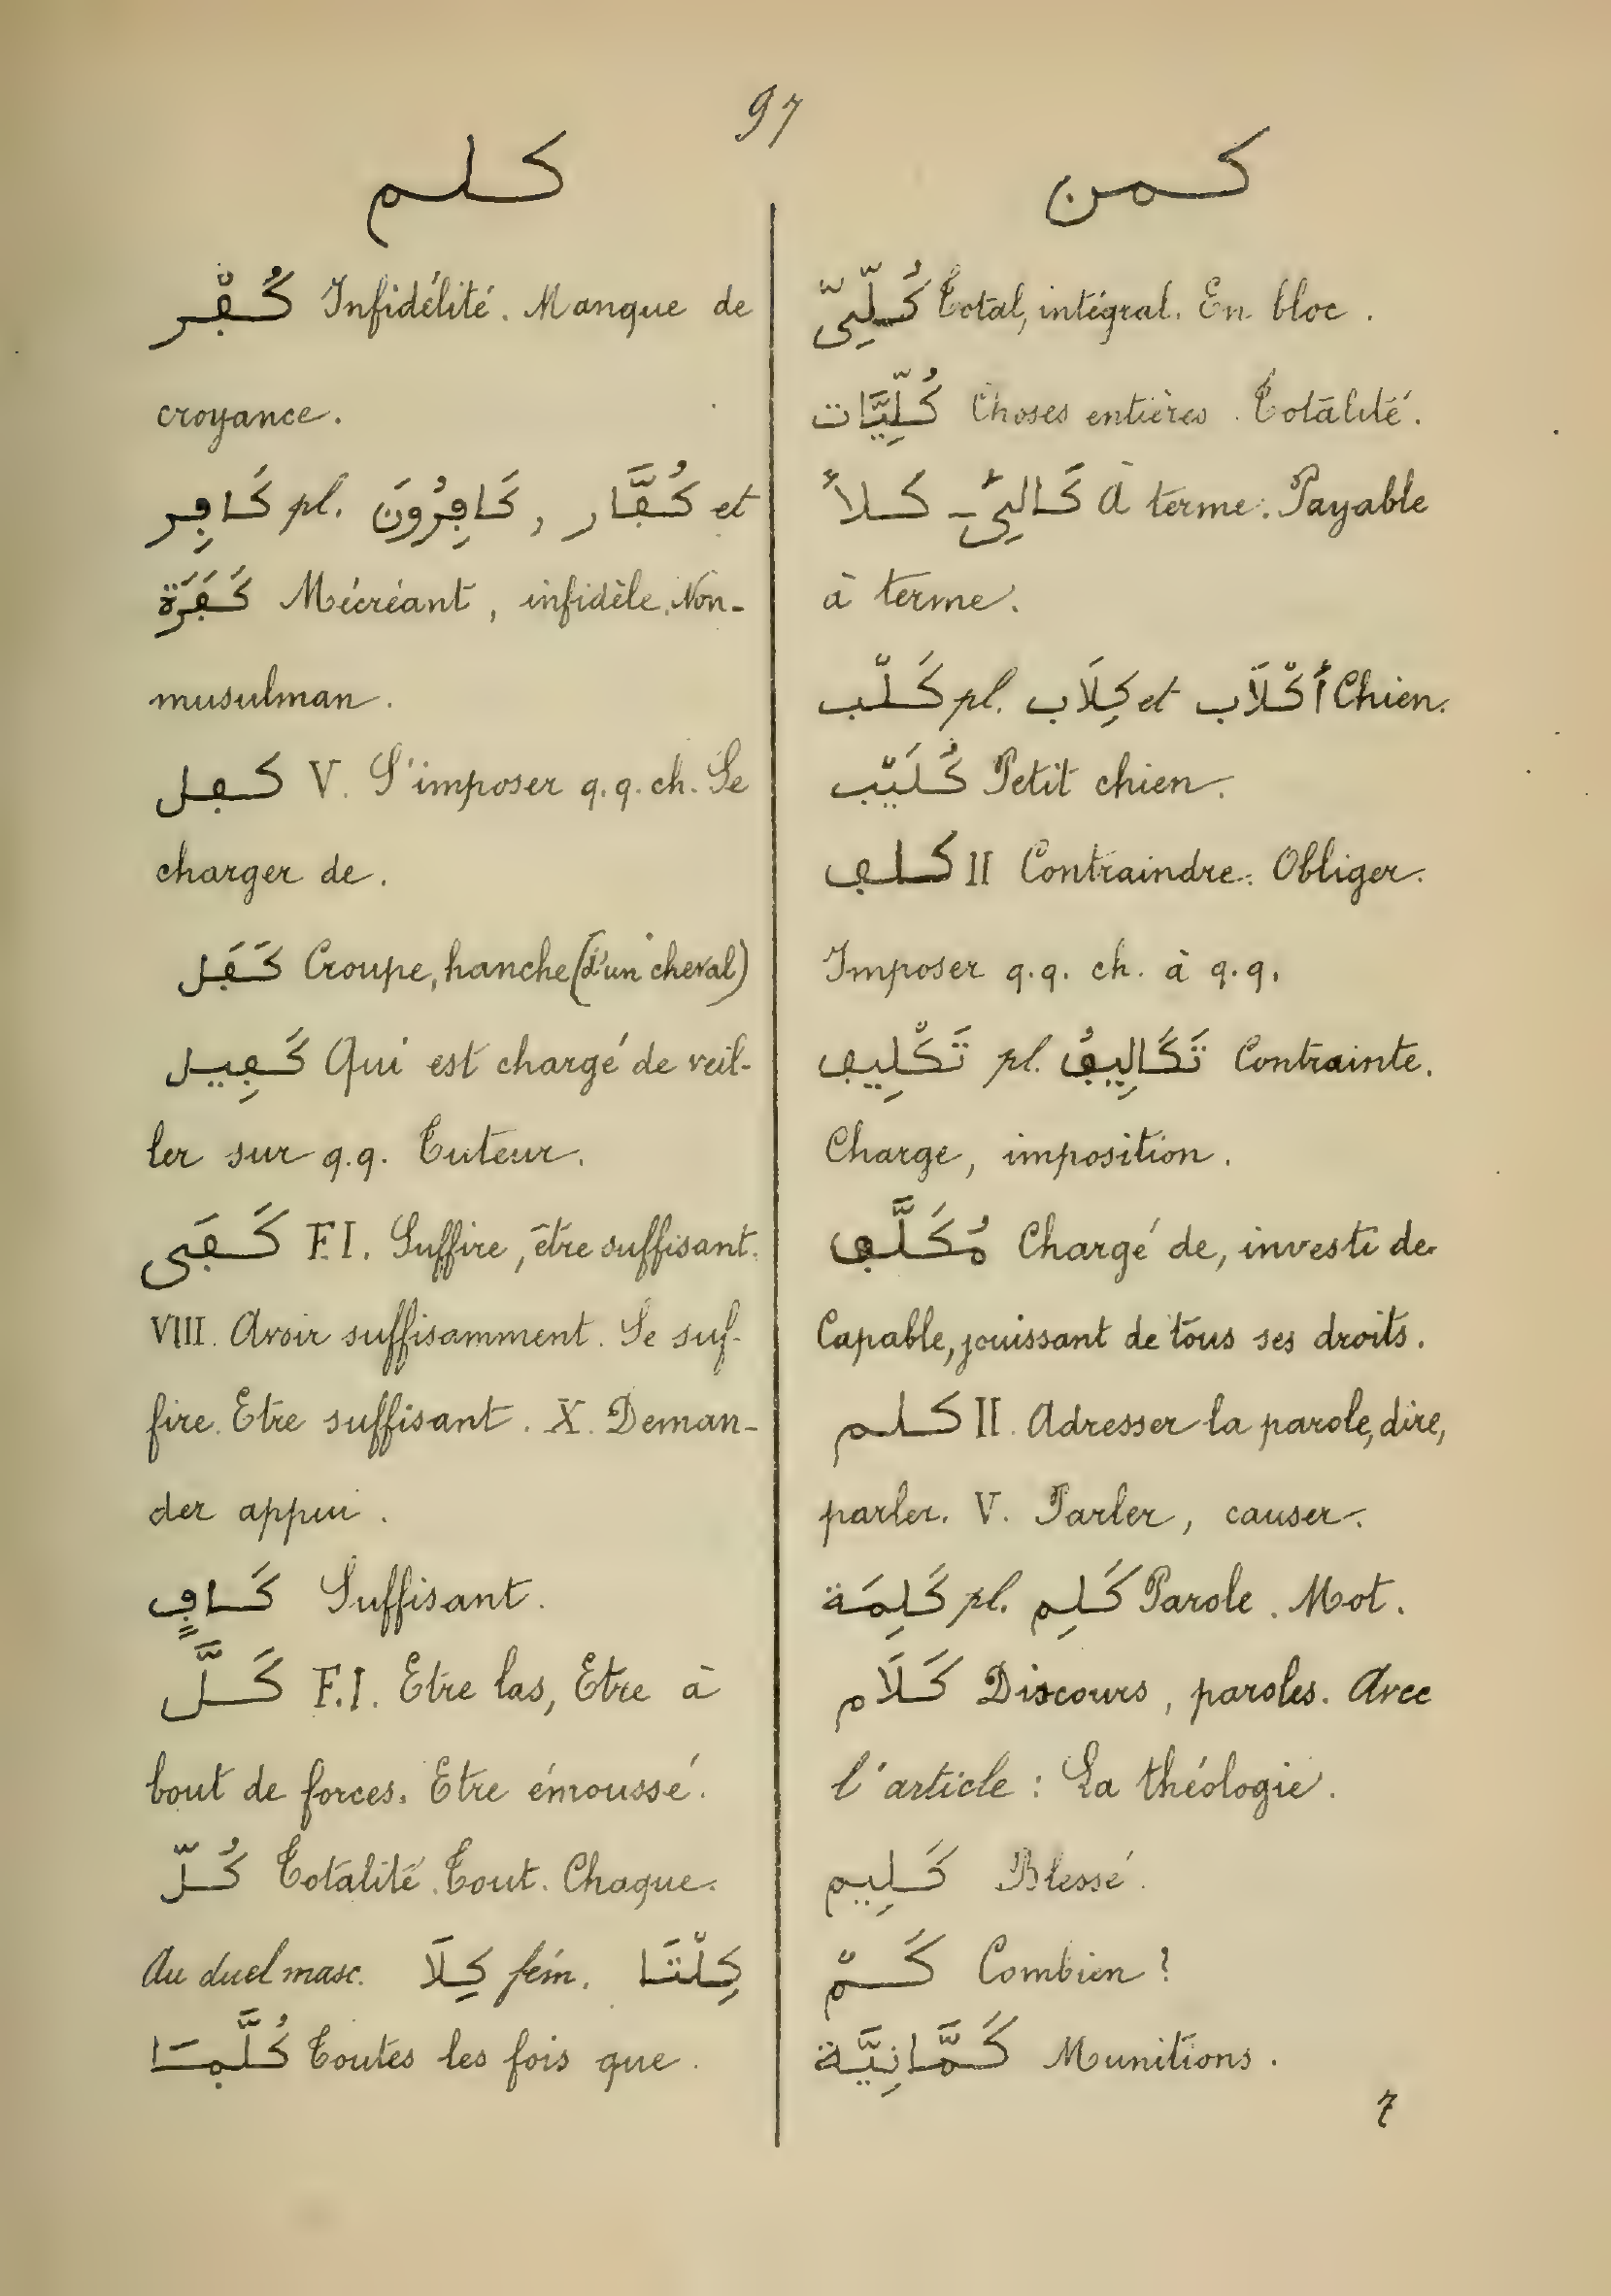 97
كلم
كُفْر Infidélité. Manque de
croyance.
كَافِر pl. كَافِرُونَ, كُفَّار et
كَفَرَة Mécréant, infidèle. Non-
musulman.
كفل V. S'imposer q.q. ch. Se
charger de.
كَفَل Croupe, hanche (d'un cheval)
كَفِيل Qui est chargé de veil-
ler sur q.q. Tuteur.
كَفَى F.I. Suffire, être suffisant.
VIII. Avoir suffisamment. Se suf-
fire. Etre suffisant. X. Deman-
der appui.
كَافٍ Suffisant.
كَلَّ F.I. Etre las, Etre à
bout de forces. Etre émoussé.
كُلّ Totalité. Tout. Chaque.
Au duel masc. كِلَا fém. كِلْتَا
كُلَّمَا Toutes les fois que.
كمن
كُلِّيّ Total, intégral. En bloc.
كُلِّيَّات Choses entières. Totalité.
كلأ - كَالِئ A terme. Payable
à terme.
كَلْب pl. كِلَاب et أَكْلَاب Chien.
كُلَيْب Petit chien.
كلف II Contraindre. Obliger.
Imposer q.q. ch. à q.q.
تَكْلِيف pl. تَكَالِيفُ Contrainte.
Charge, imposition.
مُكَلَّف Chargé de, investi de.
Capable, jouissant de tous ses droits.
كلم II. Adresser la parole, dire,
parler. V. Parler, causer.
كَلِمَة pl. كَلِم Parole. Mot.
كَلَام Discours, paroles. Avec
l'article : La théologie.
كَلِيم Blessé.
كَمْ Combien ?
كَمَّانِيَّة Munitions.
7